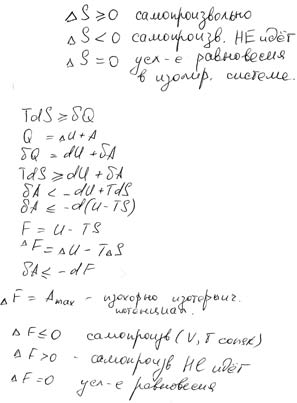 ΔS ≥ 0 самопроизвольно
ΔS < 0 самопроизв. НЕ идёт
ΔS = 0 усл-е равновесия
в изолир. системе.
TdS ≥ δQ
Q = ΔU + A
δQ = dU + δA
TdS ≥ dU + δA
δA < -dU + TdS
δA ≤ -d(U - TS)
F = U - TS
ΔF = ΔU - TΔS
δA ≤ -dF
ΔF = Amax - изохорно изотерmич.
потенциал.
ΔF ≤ 0 самопроизв (V, T const)
ΔF > 0 - самопроизв НЕ идёт
ΔF = 0 усл-е равновесия